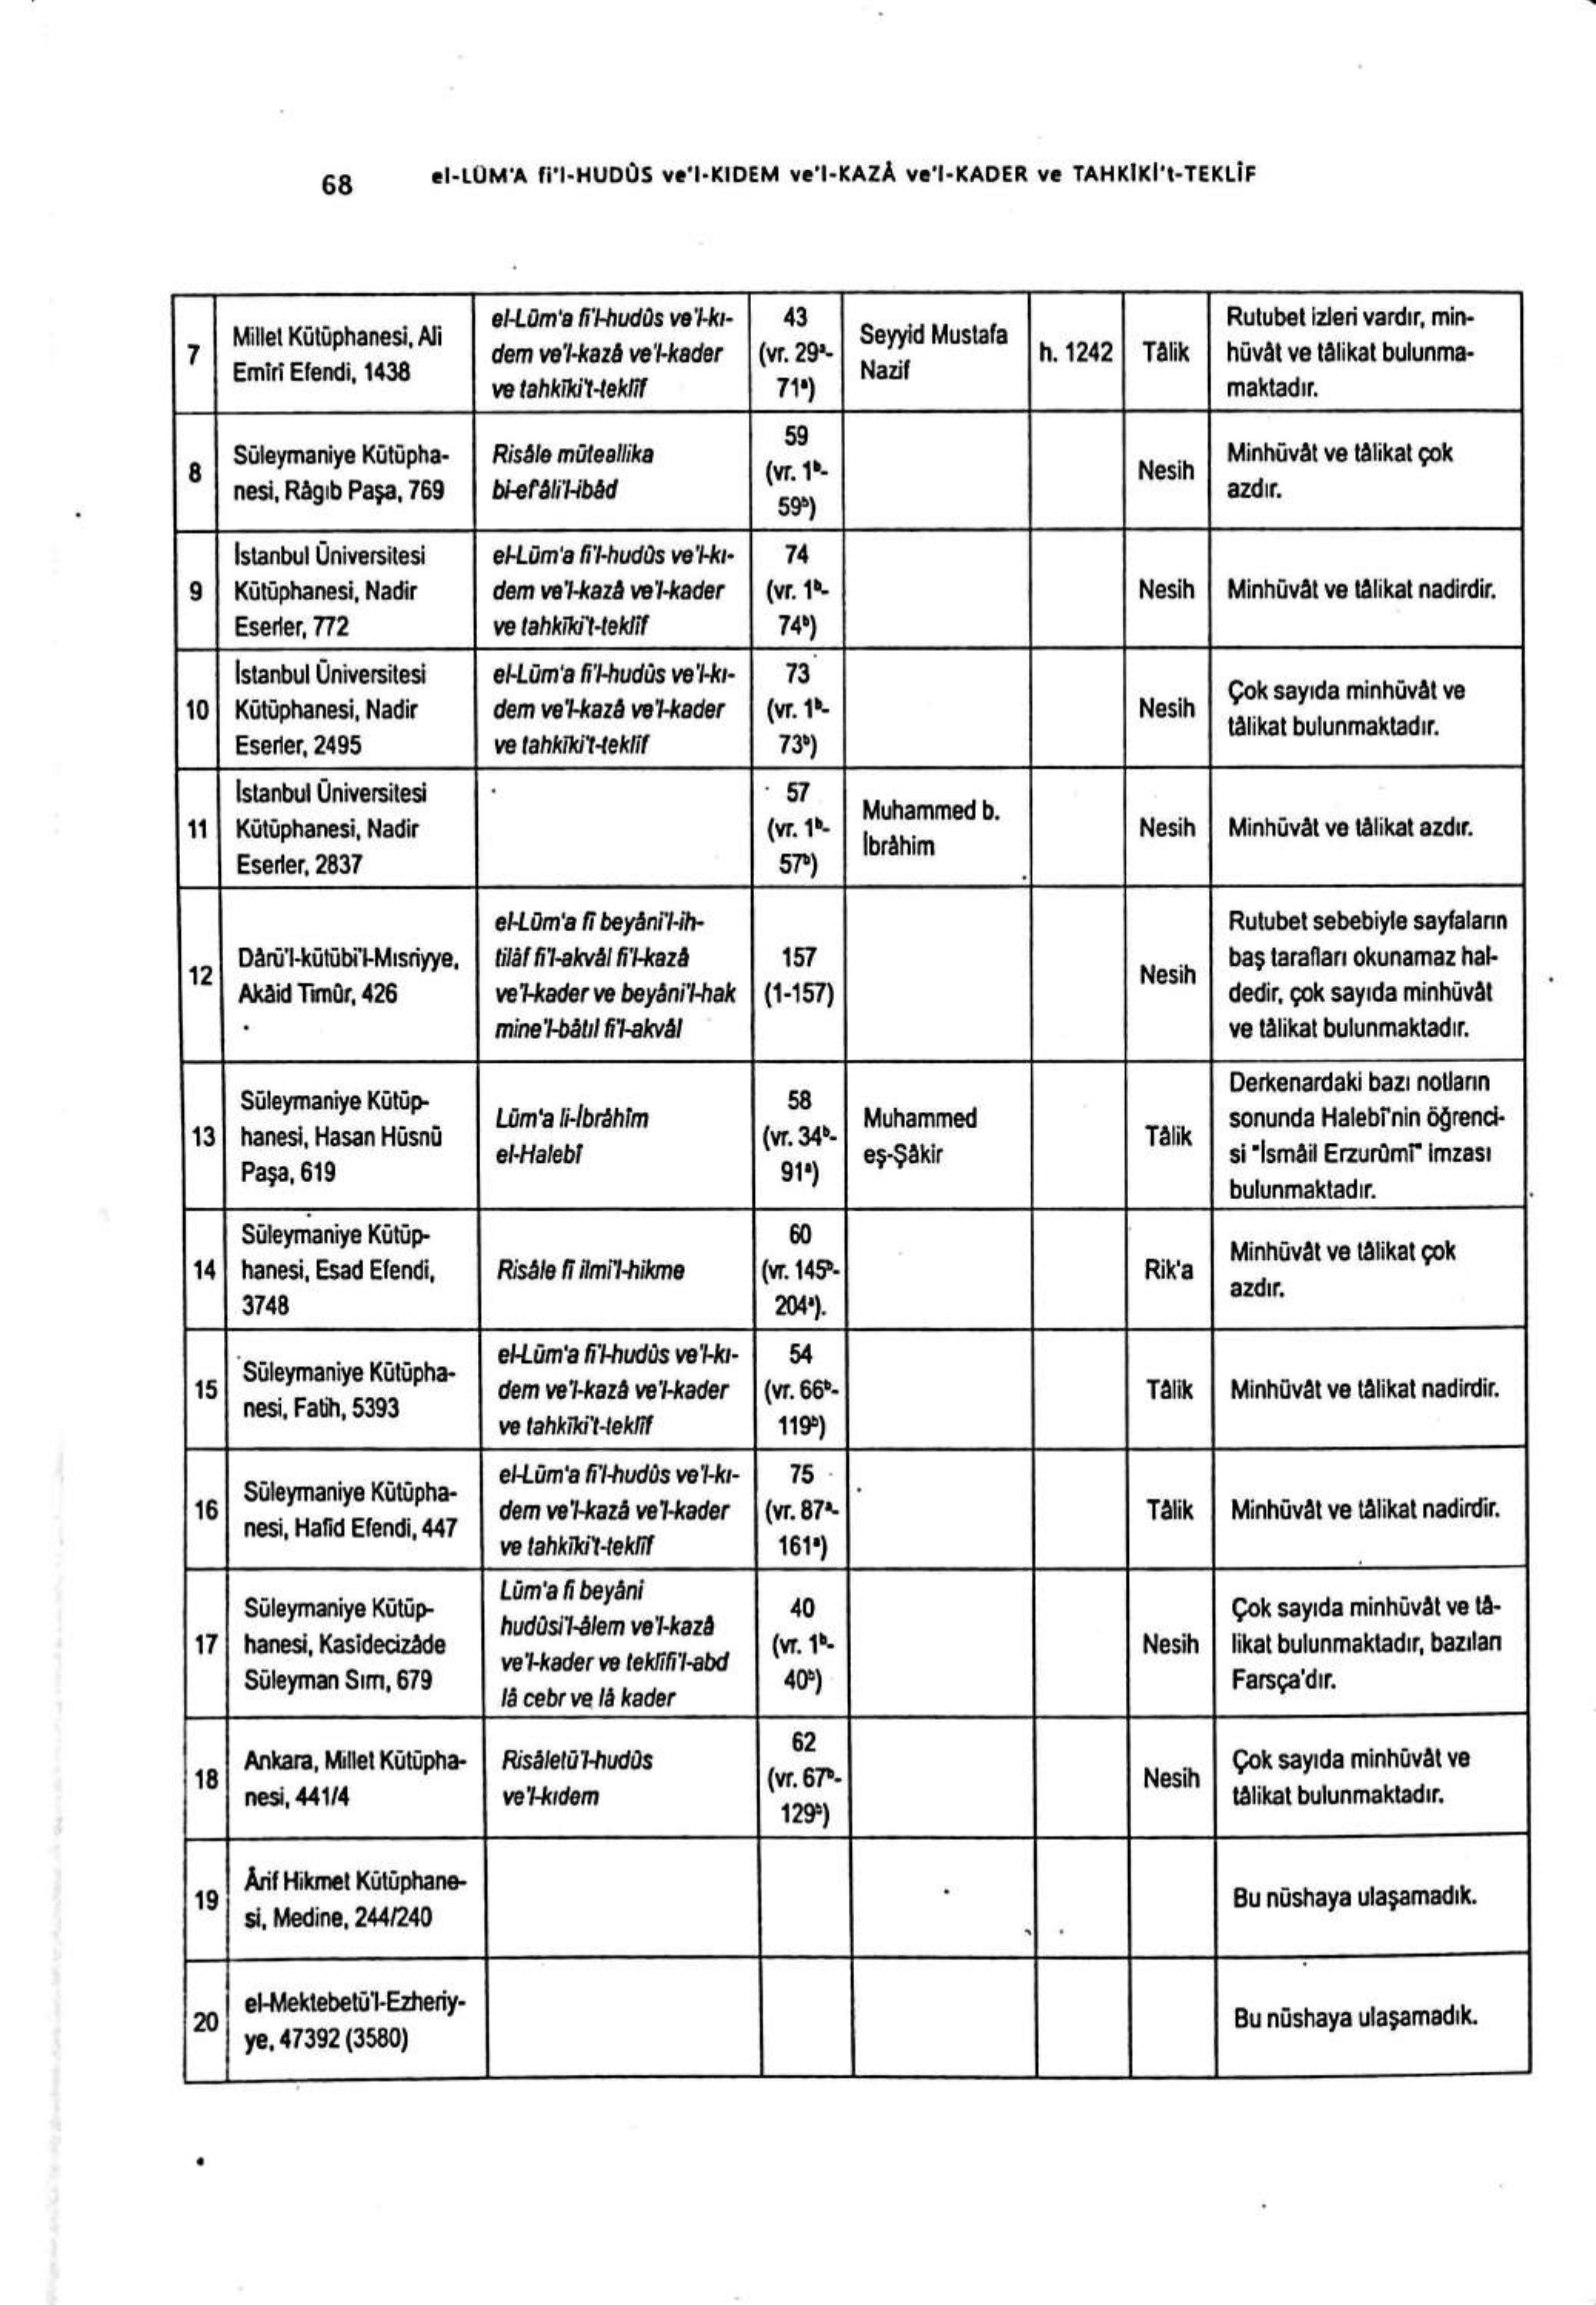 68
el-LÜM'A fi'l-HUDÛS ve'l-KIDEM ve'l-KAZÂ ve'l-KADER ve TAHKÎKİ't-TEKLÎF
7
Millet Kütüphanesi, Ali
Emîrî Efendi, 1438
el-Lüm'a fi'l-hudûs ve'l-kı-
dem ve'l-kazâ ve'l-kader
ve tahkîki't-teklîf
43
(vr. 29ᵃ-
71ᵃ)
Seyyid Mustafa
Nazif
h. 1242
Tâlik
Rutubet izleri vardır, min-
hüvât ve tâlikat bulunma-
maktadır.
8
Süleymaniye Kütüpha-
nesi, Râgıb Paşa, 769
Risâle müteallika
bi-ef'âli'l-ibâd
59
(vr. 1ᵇ-
59ᵇ)
Nesih
Minhüvât ve tâlikat çok
azdır.
9
İstanbul Üniversitesi
Kütüphanesi, Nadir
Eserler, 772
el-Lüm'a fi'l-hudûs ve'l-kı-
dem ve'l-kazâ ve'l-kader
ve tahkîki't-teklîf
74
(vr. 1ᵇ-
74ᵇ)
Nesih
Minhüvât ve tâlikat nadirdir.
10
İstanbul Üniversitesi
Kütüphanesi, Nadir
Eserler, 2495
el-Lüm'a fi'l-hudûs ve'l-kı-
dem ve'l-kazâ ve'l-kader
ve tahkîki't-teklîf
73
(vr. 1ᵇ-
73ᵇ)
Nesih
Çok sayıda minhüvât ve
tâlikat bulunmaktadır.
11
İstanbul Üniversitesi
Kütüphanesi, Nadir
Eserler, 2837
57
(vr. 1ᵇ-
57ᵇ)
Muhammed b.
İbrâhim
Nesih
Minhüvât ve tâlikat azdır.
12
Dârü'l-kütübi'l-Mısriyye,
Akâid Timûr, 426
el-Lüm'a fî beyâni'l-ih-
tilâf fi'l-akvâl fi'l-kazâ
ve'l-kader ve beyâni'l-hak
mine'l-bâtıl fi'l-akvâl
157
(1-157)
Nesih
Rutubet sebebiyle sayfaların
baş tarafları okunamaz hal-
dedir, çok sayıda minhüvât
ve tâlikat bulunmaktadır.
13
Süleymaniye Kütüp-
hanesi, Hasan Hüsnü
Paşa, 619
Lüm'a li-İbrâhîm
el-Halebî
58
(vr. 34ᵇ-
91ᵃ)
Muhammed
eş-Şâkir
Tâlik
Derkenardaki bazı notların
sonunda Halebî'nin öğrenci-
si "İsmâil Erzurûmî" imzası
bulunmaktadır.
14
Süleymaniye Kütüp-
hanesi, Esad Efendi,
3748
Risâle fî ilmi'l-hikme
60
(vr. 145ᵇ-
204ᵃ).
Rik'a
Minhüvât ve tâlikat çok
azdır.
15
Süleymaniye Kütüpha-
nesi, Fatih, 5393
el-Lüm'a fi'l-hudûs ve'l-kı-
dem ve'l-kazâ ve'l-kader
ve tahkîki't-teklîf
54
(vr. 66ᵇ-
119ᵇ)
Tâlik
Minhüvât ve tâlikat nadirdir.
16
Süleymaniye Kütüpha-
nesi, Hafid Efendi, 447
el-Lüm'a fi'l-hudûs ve'l-kı-
dem ve'l-kazâ ve'l-kader
ve tahkîki't-teklîf
75
(vr. 87ᵃ-
161ᵃ)
Tâlik
Minhüvât ve tâlikat nadirdir.
17
Süleymaniye Kütüp-
hanesi, Kasîdecizâde
Süleyman Sırrı, 679
Lüm'a fi beyâni
hudûsi'l-âlem ve'l-kazâ
ve'l-kader ve teklîfi'l-abd
lâ cebr ve lâ kader
40
(vr. 1ᵇ-
40ᵇ)
Nesih
Çok sayıda minhüvât ve tâ-
likat bulunmaktadır, bazıları
Farsça'dır.
18
Ankara, Millet Kütüpha-
nesi, 441/4
Risâletü'l-hudûs
ve'l-kıdem
62
(vr. 67ᵇ-
129ᵇ)
Nesih
Çok sayıda minhüvât ve
tâlikat bulunmaktadır.
19
Ârif Hikmet Kütüphane-
si, Medine, 244/240
Bu nüshaya ulaşamadık.
20
el-Mektebetü'l-Ezheriy-
ye, 47392 (3580)
Bu nüshaya ulaşamadık.